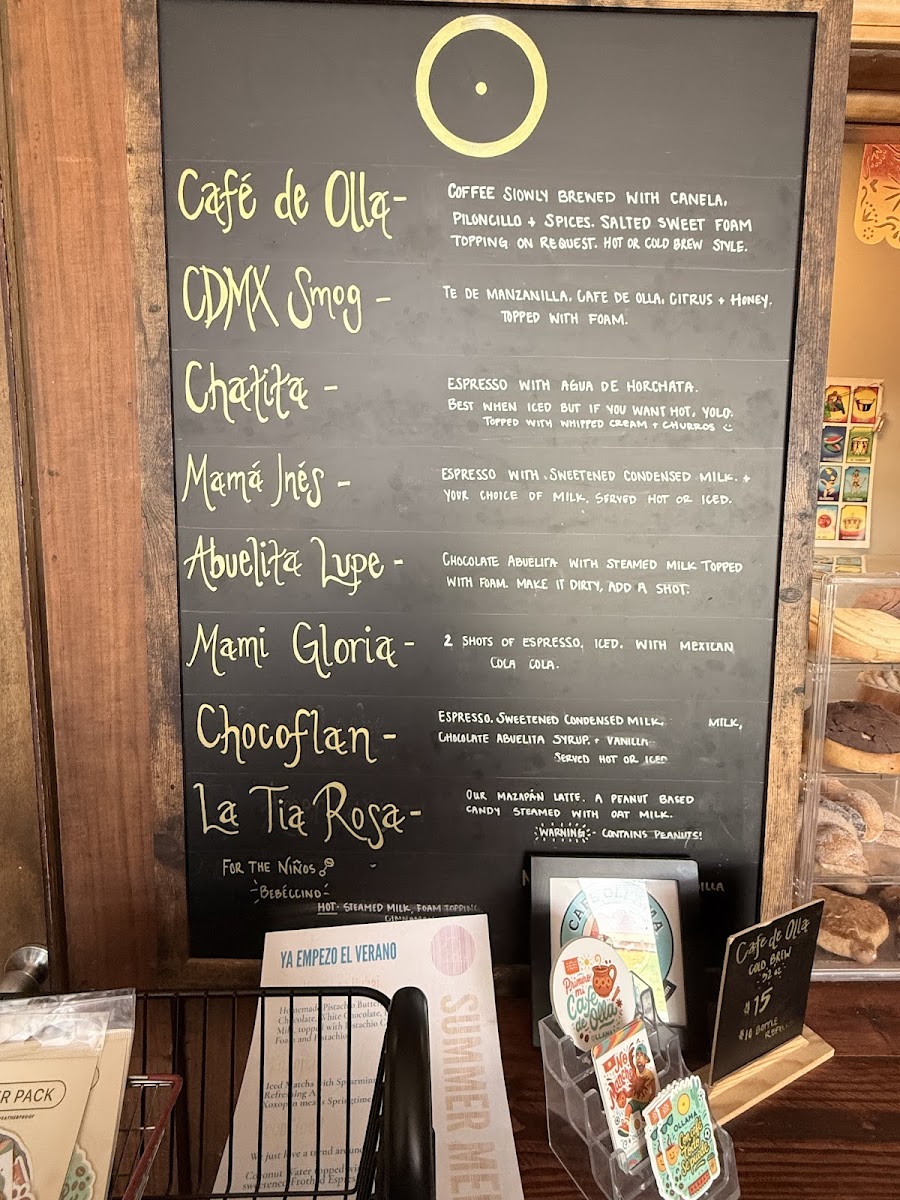 Café de Olla-
COFFEE SLOWLY BREWED WITH CANELA,
PILONCILLO + SPICES. SALTED SWEET FOAM
TOPPING ON REQUEST. HOT OR COLD BREW STYLE.
CDMX Smog -
TE DE MANZANILLA, CAFE DE OLLA, CITRUS + HONEY.
TOPPED WITH FOAM.
Chatita -
ESPRESSO WITH AGUA DE HORCHATA.
BEST WHEN ICED BUT IF YOU WANT HOT, YOLO.
TOPPED WITH WHIPPED CREAM + CHURROS
Mamá Inés -
ESPRESSO WITH SWEETENED CONDENSED MILK +
YOUR CHOICE OF MILK. SERVED HOT OR ICED.
Abuelita Lupe -
CHOCOLATE ABUELITA WITH STEAMED MILK TOPPED
WITH FOAM. MAKE IT DIRTY, ADD A SHOT.
Mami Gloria -
2 SHOTS OF ESPRESSO, ICED, WITH MEXICAN
COLA COLA.
Chocoflan -
ESPRESSO, SWEETENED CONDENSED MILK, MILK,
CHOCOLATE ABUELITA SYRUP, + VANILLA
SERVED HOT OR ICED
La Tia Rosa -
OUR MAZAPÁN LATTE. A PEANUT BASED
CANDY STEAMED WITH OAT MILK.
WARNING: - CONTAINS PEANUTS!
FOR THE NIÑOS
- BEBÉCCINO -
HOT - STEAMED MILK, FOAM TOPPING,
YA EMPEZO EL VERANO
Homemade Pistachio
Chocolate, White Chocolate,
Milk, topped with Pistachio
Foam and Pistachio
Iced Matcha with
Refreshing
Xoxopan means Springtime
We just love a trend
Coconut Water topped
sweetened Frothed
SUMMER
PACK
Primero
mi
Café
de olla
OLLAMA
Cafe de Olla
COLD BREW
32 oz
$15
$10 BOTTLE
REFILL